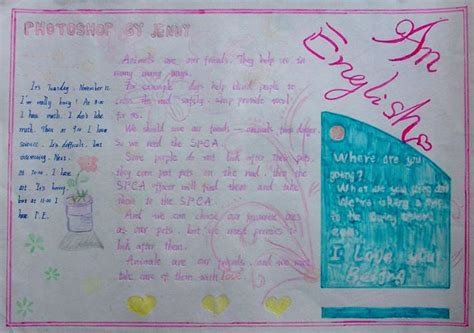 PHOTOSHOP BY JENNY
An
English
It's Tuesday, November 11.
I'm really busy! At 8:00
I have math. I don't like
math. Then at 9:00 I have
science. It's difficult, but
interesting. Next,
at
have
art. It's
but at 11:00 I
have P.E.
Animals are our friends. They help us in
many ways.
For example, dogs help blind people to
cross the road safely. sheep provide wool
for us.
We should save our friends — animals from danger.
So we need the SPCA.
Some people do not look after their pets,
they can put pets on the road, then the
SPCA officer will find them and take
them to the SPCA.
And we can choose our favourite ones
as our pets, but we must promise to
look after them.
Animals are our friends, and we must
take care of them with love.
Where are you
going?
What are you doing
taking a
to the
I Love you
Beijing